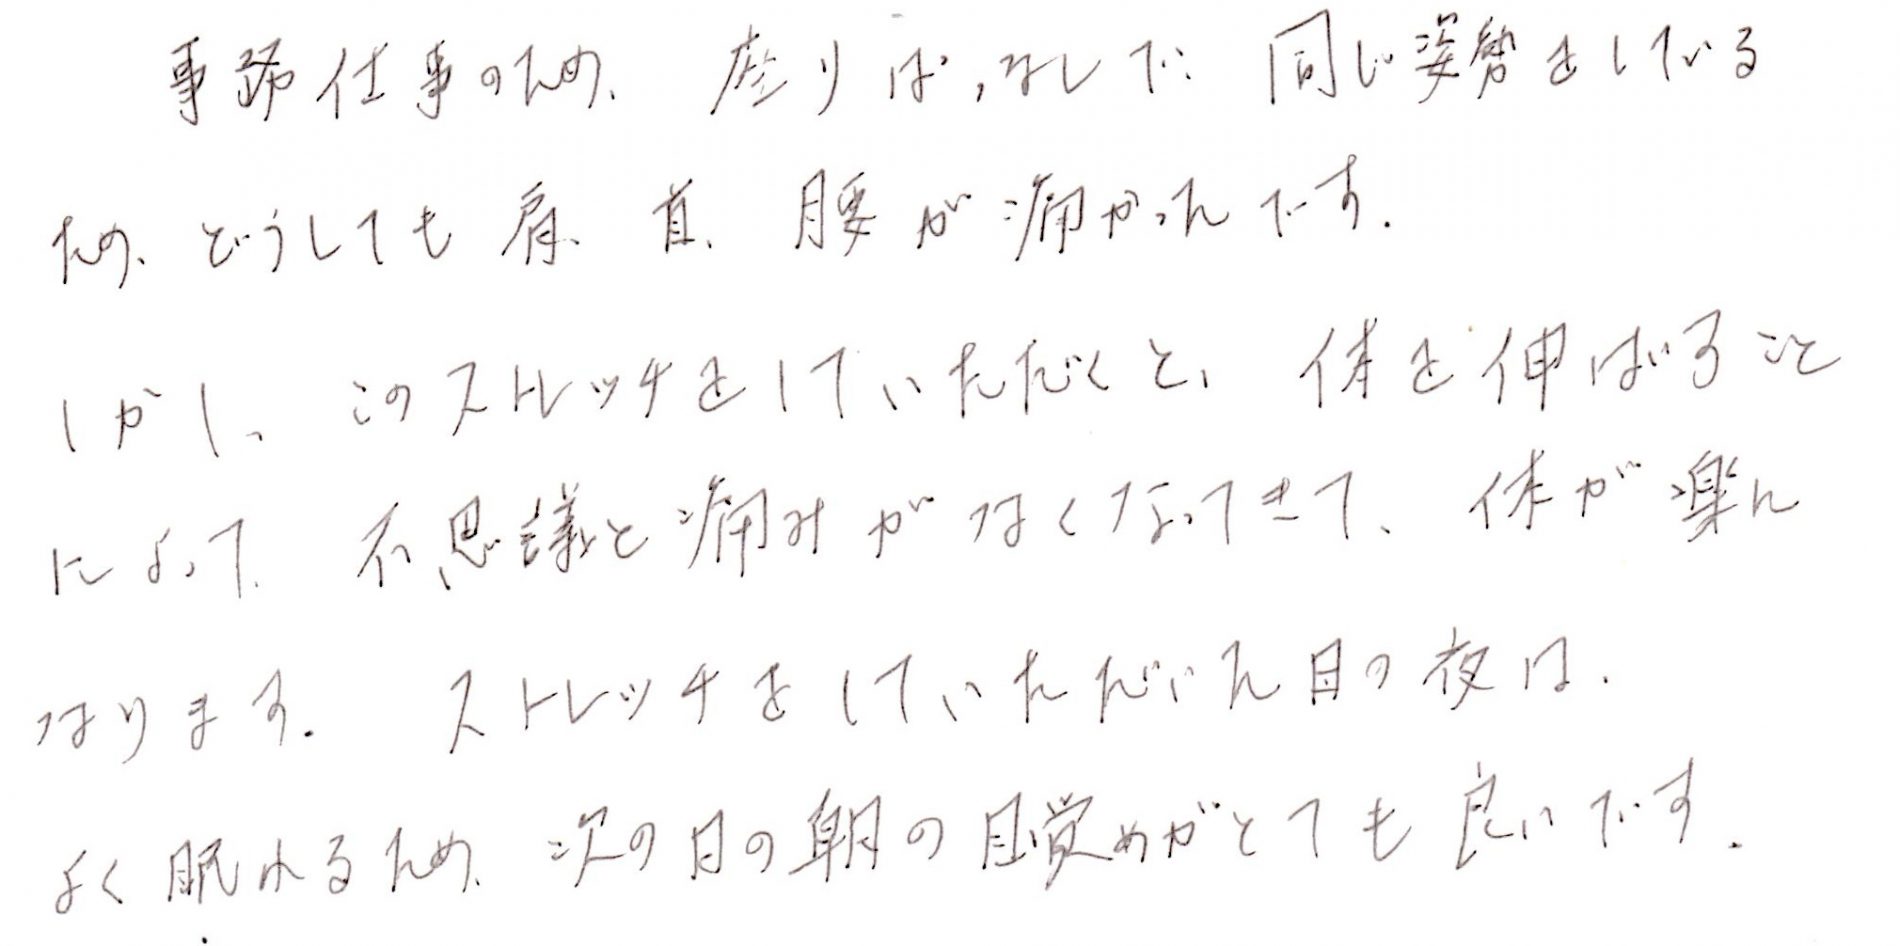 事務仕事のため、座りぱっなしで同じ姿勢をしている
ため、どうしても肩、首、腰が痛かったです。
しかし、このストレッチをしていただくと、体を伸ばすること
によって、不思議と痛みがなくなってきて、体が楽に
なります。ストレッチをしていただいた日の夜は、
よく眠れるため、次の日の朝の目覚めがとても良いです。